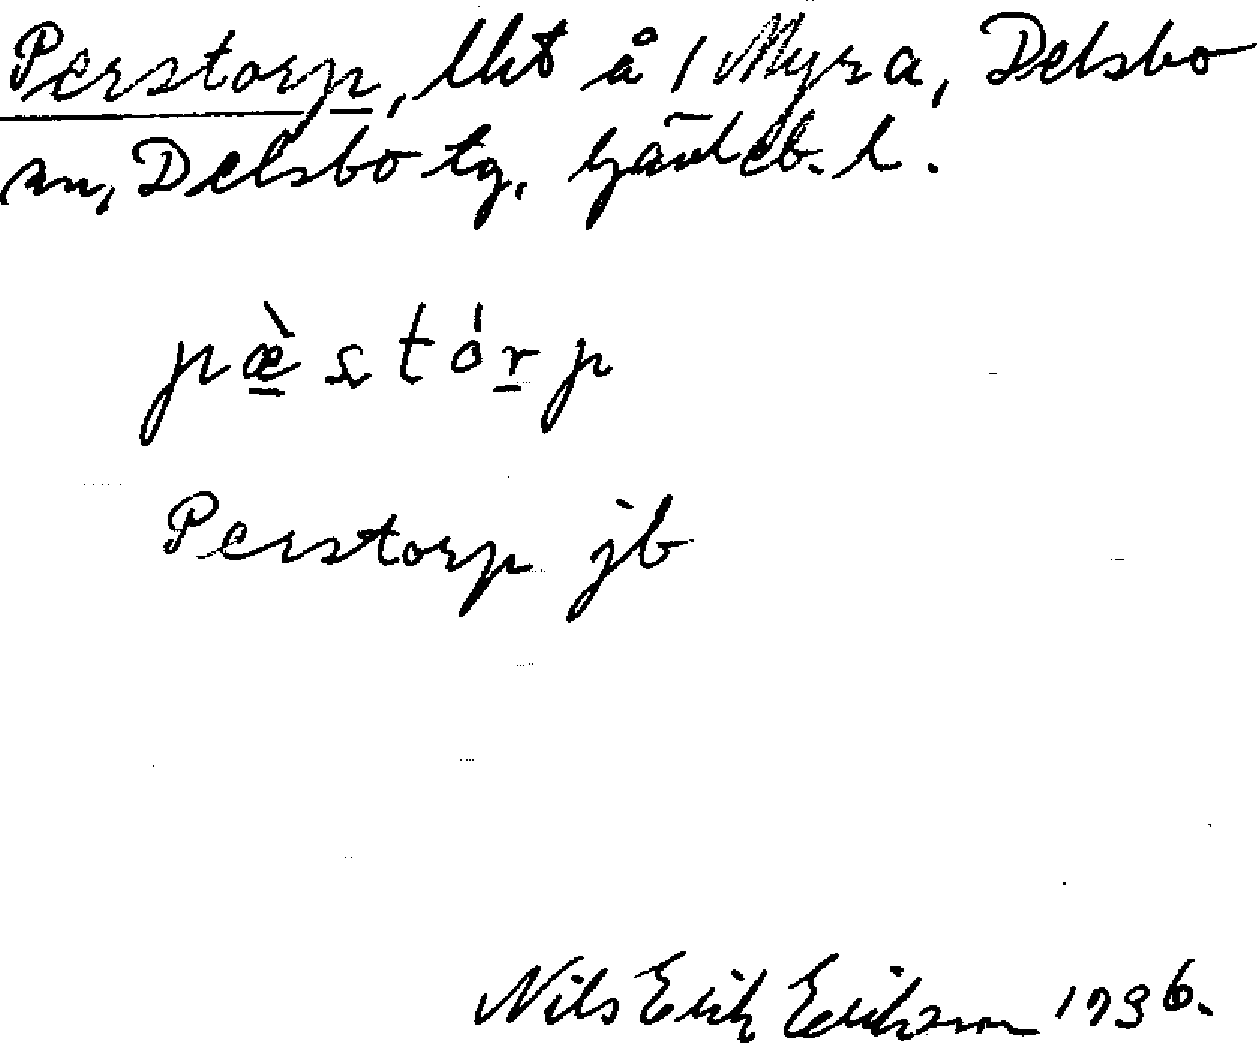 Perstorp, lht å 1 Myra, Delsbo
sn, Delsbo tg, Gävleb. l.
pæ̀stórp
Perstorp jb
Nils Erik Erikson 1936.